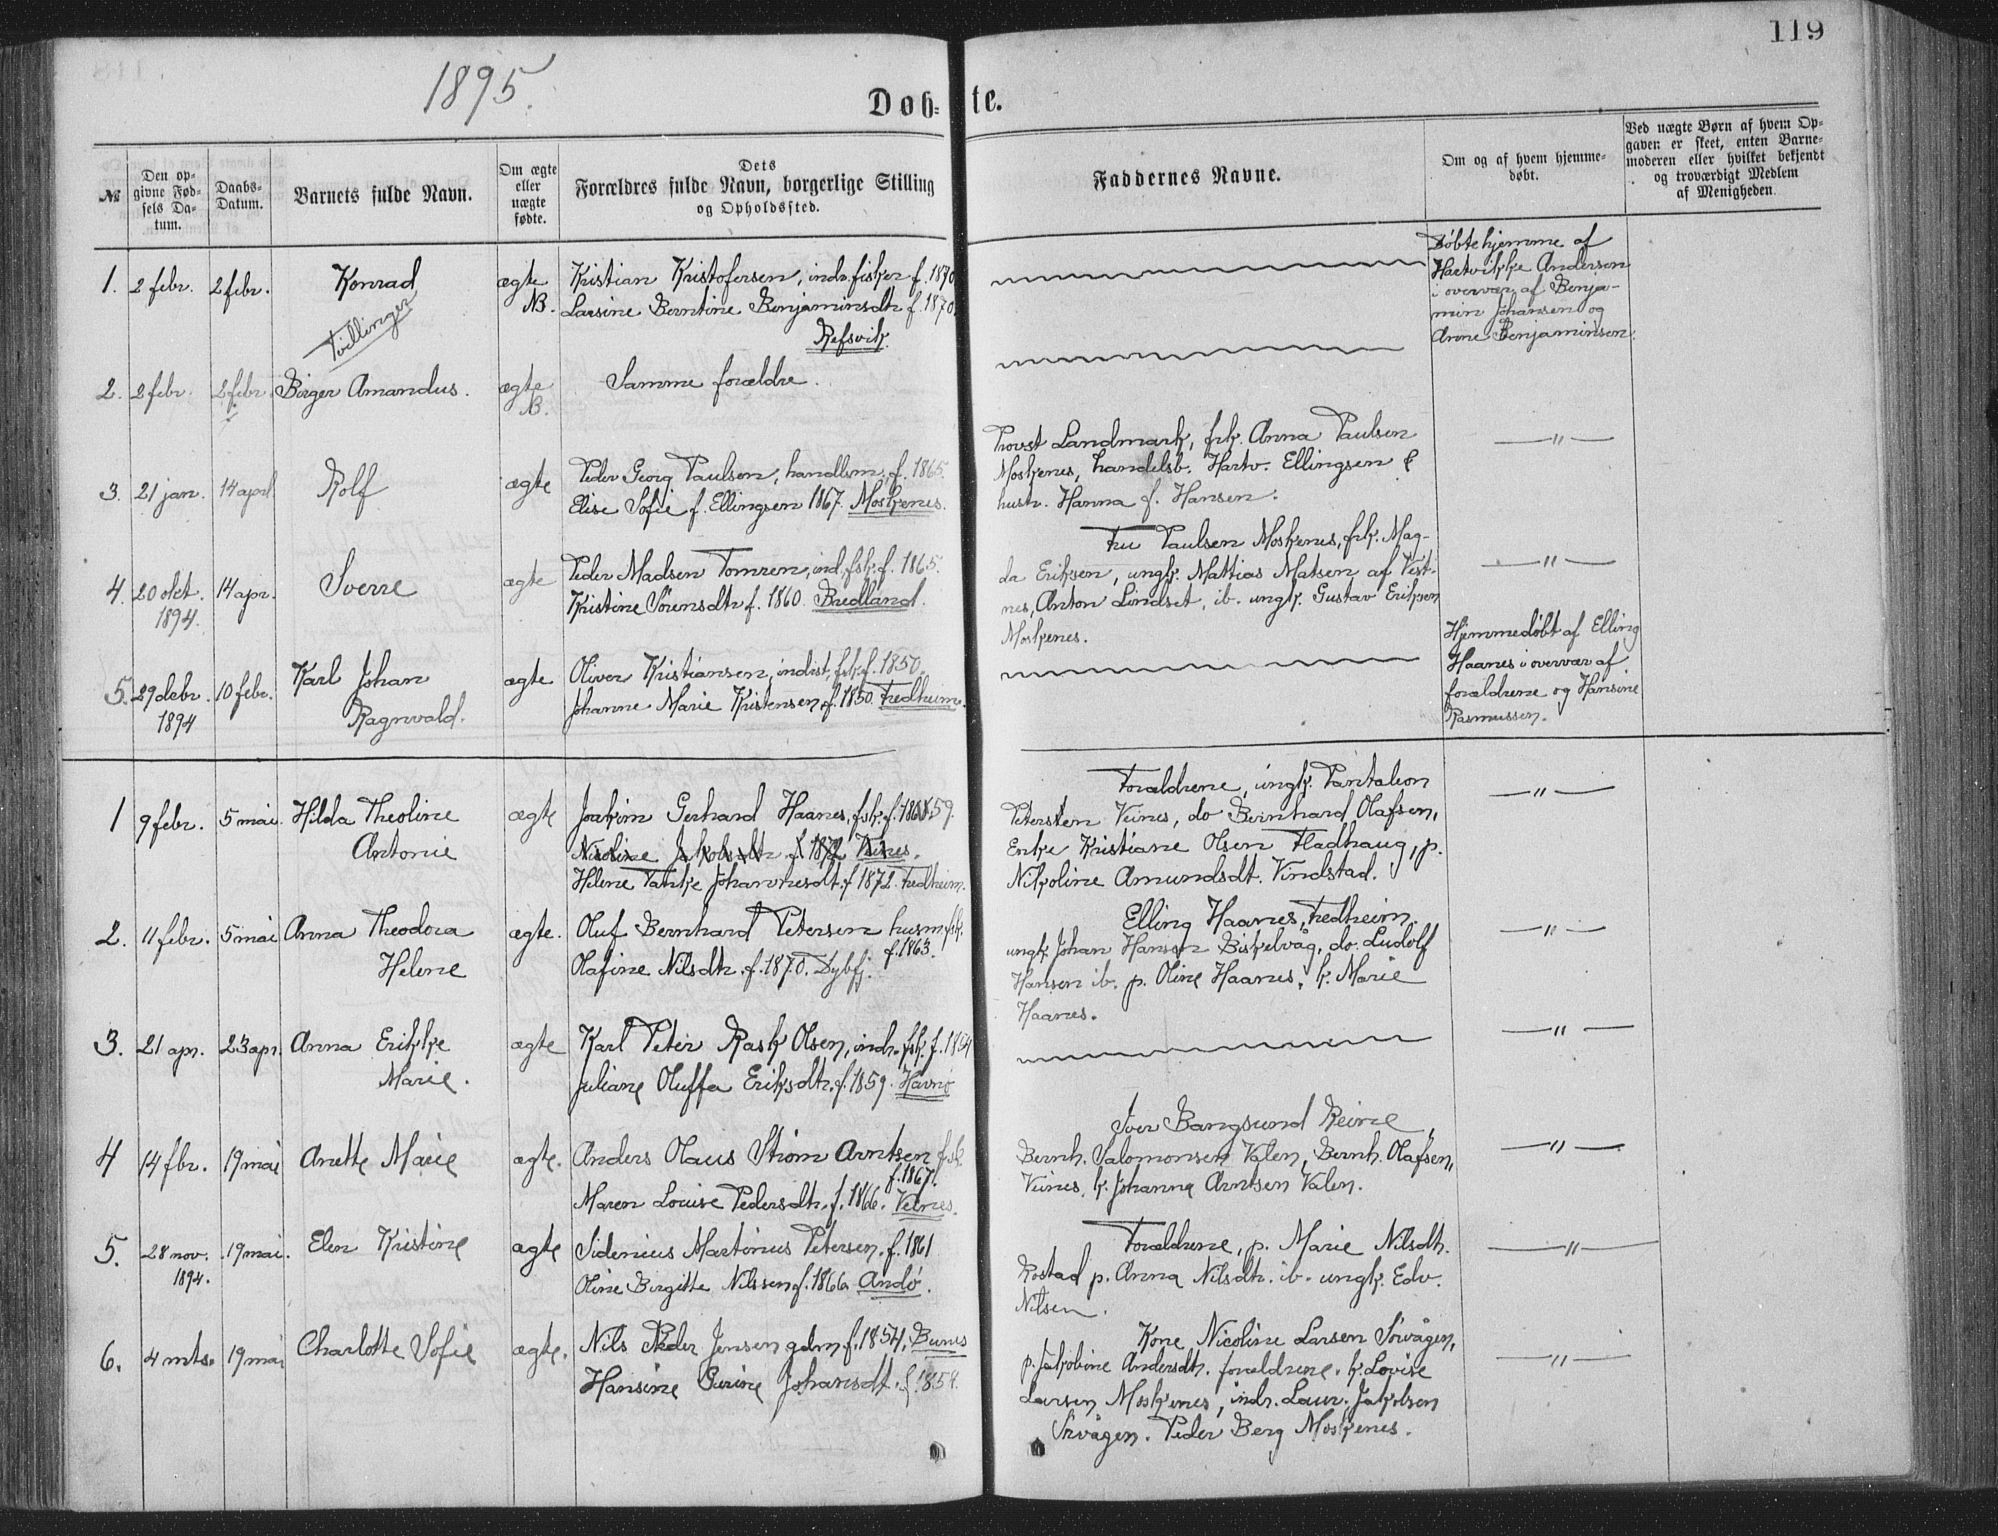 119
1895.
Døb- te.
№
Den op-
givne Fød-
sels Da-
tum.
Daabs-
Datum.
Barnets fulde Navn.
Om ægte
eller
uægte
fødte.
Dets
Forældres fulde Navn, borgerlige Stilling
og Opholdssted.
Faddernes Navne.
Om og af hvem hjemme-
døbt.
Ved uægte Børn af hvem Op-
gaven er skeet, enten Barne-
moderen eller hvilket bekjendt
og troværdigt Medlem
af Menigheden.
1. 2 febr. 2 febr. Konrad ægte Kristian Kristofersen, indr. fisker f. 1870
NB. Larsine Berntine Benjaminsdtr f. 1870.
Tvillinger
Refsvik.
Döbte hjemme af
Hartvikke Andersen
i overvær af Benja-
min Johansen og
Anne Benjaminsen.
2. 2 febr. 2 febr. Birger Amandus. ægte Samme forældre.
NB.
3. 21 jan. 14 april Rolf ægte Peder Georg Paulsen, handlsm. f. 1865.
Elise Sofie f. Ellingsen 1867. Moskenes.
Provst Landmark, frk. Anna Paulsen
Moskenes, handelsb. Hartv. Ellingsen &
hustr. Hanna f. Hansen.
—"—
4. 20 okt. 14 apr. Sverre ægte Peder Madsen Tomren, ind. fsk. f. 1865.
1894. Kristine Sörensdtr f. 1860. Bredland.
Fru Paulsen Moskenes, frk. Mag-
da Eriksen, ungk. Mattias Matsen af Vest-
nes, Anton Lindset, ib. ungk. Gustav Eriksen
Moskenes.
—"—
5. 29 debr. 10 febr. Karl Johan ægte Oliver Kristiansen, indrst. fsk. f. 1850.
1894 Ragnvald. Johanne Marie Kristensen f. 1850. Fredheim.
Hjemmedöbt af Elling
Haanes i overvær af
forældrene og Hansine
Rasmussen.
1 9 febr. 5 mai. Hilda Theoline ægte Joakim Gerhard Haanes, fsk. f. 59.
Antonie Nicoline Jakobsdtr f 1872 Veines.
Helene Tanke Johannesdt. f 1872. Fredheim.
Forældrene, ungk. Pantaleon
Petersten Veines, do Bernhard Olafsen,
Enke Kristiane Olsen Fladhaug, p.
Nikoline Amundsdt. Vindstad.
—"—
2. 11 febr. 5 mai Anna Theodora ægte. Oluf Bernhard Petersen husm. fsk.
f. 1863.
Helene Olafine Nilsdtr. f. 1870. Dybfj.
Elling Haanes, Fredheim.
ungk. Johan Hansen Biskelvåg, do. Ludolf
Hansen ib. p. Oline Haanes, k. Marie
Haanes.
—"—
3. 21 apr. 23 apr. Anna Erikke ægte Karl Peter Rask Olsen, indr. fsk. f.
Marie. Juliane Oluffa Eriksdtr. f. 1859. Havnö
—"—
4 14 fbr. 19 mai Anette Marie ægte. Anders Olaus Ström Arntsen fsk.
f. 1867.
Maren Louise Pedersdtr. f. 1866. Veines.
Iver Bangsund Reine,
Bernh. Salomonsen Valen, Bernh. Olafsen,
Veines, k. Johanna Arntsen Valen.
—"—
5. 28 nov. 19 mai. Elen Kristine ægte Sidenius Martinius Petersen. f. 1861
1894. Oline Birgitte Nilssen f. 1866 Andö.
Forældrene, p. Marie Nilsdtr.
Rostad p. Anna Nilsdtr. ib. ungk. Edv.
Nilsen.
—"—
6. 4 mts. 19 mai Charlotte Sofie ægte. Nils Peder Jensen gdm f. 1854, Bunes
Hansine Johansdt. f. 1854.
Kone Nicoline Larsen Sörvågen,
p. Jakobine Andersdtr. forældrene. k. Lovise
Larsen Moskenes, indr. Laur. Jakobsen
Sörvågen. Peder Berg Moskenes.
—"—